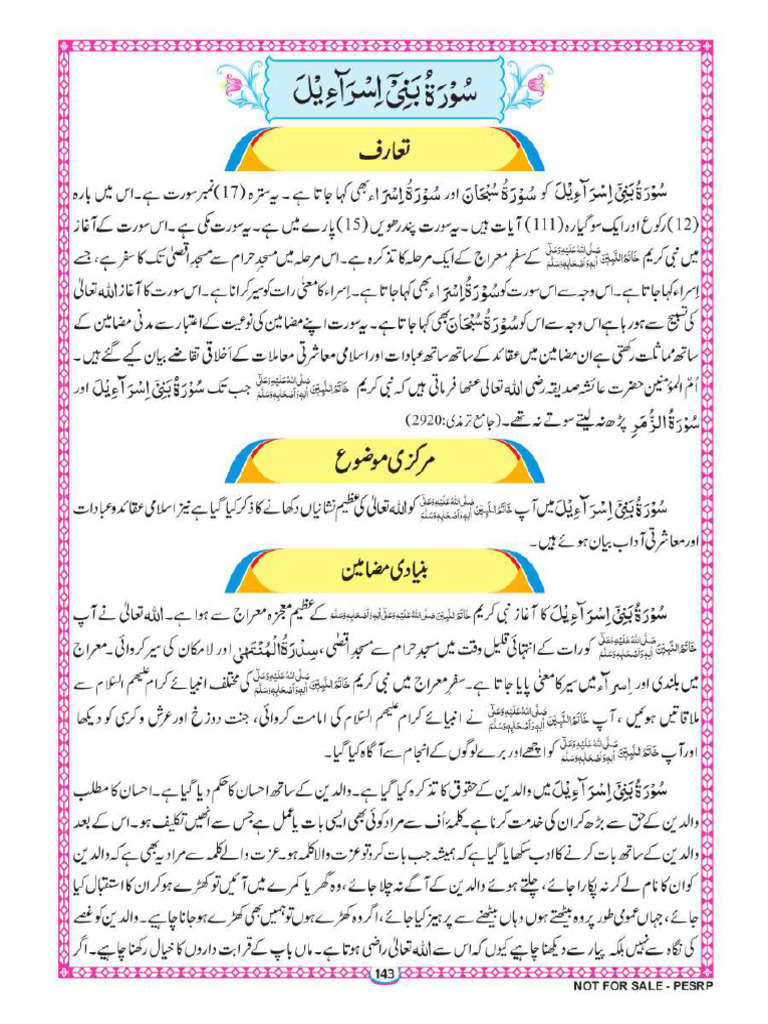 سُوْرَةُ بَنِیْٓ اِسْرَآءِیْلَ
تعارف
سُوْرَةُ بَنِیْٓ اِسْرَآءِیْلَ کو سُوْرَۃُ سُبْحَانَ اور سُوْرَۃُ اِسْرَاء بھی کہا جاتا ہے۔ یہ سترہ (17) نمبر سورت ہے۔ اس میں بارہ
(12) رکوع اور ایک سو گیارہ (111) آیات ہیں۔ یہ سورت پندرھویں (15) پارے میں ہے۔ یہ سورت مکی ہے۔ اس سورت کے آغاز
میں نبی کریم خَاتَمُ النَّبِیّٖنَ صَلَّی اللّٰہُ عَلَیْہِ وَعَلٰٓی اٰلِہٖ وَاَصْحَابِہٖ وَسَلَّمَ کے سفرِ معراج کے ایک مرحلہ کا تذکرہ ہے۔ اس مرحلہ میں مسجدِ حرام سے مسجدِ اقصٰی تک کا سفر ہے، جسے
اِسراء کہا جاتا ہے۔ اس وجہ سے اس سورت کو سُوْرَۃُ اِسْرَاء بھی کہا جاتا ہے۔ اِسراء کا معنٰی رات کو سیر کرانا ہے۔ اس سورت کا آغاز اللہ تعالیٰ
کی تسبیح سے ہو رہا ہے اس وجہ سے اس کو سُوْرَۃُ سُبْحَانَ بھی کہا جاتا ہے۔ یہ سورت اپنے مضامین کی نوعیت کے اعتبار سے مدنی مضامین کے
ساتھ مماثلت رکھتی ہے ان مضامین میں عقائد کے ساتھ ساتھ عبادات اور اسلامی معاشرتی معاملات کے اَخلاقی تقاضے بیان کیے گئے ہیں۔
اُمّ المؤمنین حضرت عائشہ صدیقہ رضی اللہ تعالیٰ عنھا فرماتی ہیں کہ نبی کریم خَاتَمُ النَّبِیّٖنَ صَلَّی اللّٰہُ عَلَیْہِ وَعَلٰٓی اٰلِہٖ وَاَصْحَابِہٖ وَسَلَّمَ جب تک سُوْرَةُ بَنِیْٓ اِسْرَآءِیْلَ اور
سُوْرَۃُ الزُّمَرِ پڑھ نہ لیتے سوتے نہ تھے۔ (جامع ترمذی: 2920)
مرکزی موضوع
سُوْرَةُ بَنِیْٓ اِسْرَآءِیْلَ میں آپ خَاتَمُ النَّبِیّٖنَ صَلَّی اللّٰہُ عَلَیْہِ وَعَلٰٓی اٰلِہٖ وَاَصْحَابِہٖ وَسَلَّمَ کو اللہ تعالیٰ کی عظیم نشانیاں دکھانے کا ذکر کیا گیا ہے نیز اسلامی عقائد و عبادات
اور معاشرتی آداب بیان ہوئے ہیں۔
بنیادی مضامین
سُوْرَةُ بَنِیْٓ اِسْرَآءِیْلَ کا آغاز نبی کریم خَاتَمُ النَّبِیّٖنَ صَلَّی اللّٰہُ عَلَیْہِ وَعَلٰٓی اٰلِہٖ وَاَصْحَابِہٖ وَسَلَّمَ کے عظیم معجزہ معراج سے ہوا ہے۔ اللہ تعالیٰ نے آپ
خَاتَمُ النَّبِیّٖنَ صَلَّی اللّٰہُ عَلَیْہِ وَعَلٰٓی اٰلِہٖ وَاَصْحَابِہٖ وَسَلَّمَ کو رات کے انتہائی قلیل وقت میں مسجدِ حرام سے مسجدِ اقصٰی، سِدْرَۃُ الْمُنْتَھٰی اور لامکان کی سیر کروائی۔ معراج
میں بلندی اور اِسراء میں سیر کا معنٰی پایا جاتا ہے۔ سفرِ معراج میں نبی کریم خَاتَمُ النَّبِیّٖنَ صَلَّی اللّٰہُ عَلَیْہِ وَعَلٰٓی اٰلِہٖ وَاَصْحَابِہٖ وَسَلَّمَ کی مختلف انبیائے کرام علیھم السلام سے
ملاقاتیں ہوئیں، آپ خَاتَمُ النَّبِیّٖنَ صَلَّی اللّٰہُ عَلَیْہِ وَعَلٰٓی اٰلِہٖ وَاَصْحَابِہٖ وَسَلَّمَ نے انبیائے کرام علیھم السلام کی امامت کروائی، جنت دوزخ اور عرش و کرسی کو دیکھا
اور آپ خَاتَمُ النَّبِیّٖنَ صَلَّی اللّٰہُ عَلَیْہِ وَعَلٰٓی اٰلِہٖ وَاَصْحَابِہٖ وَسَلَّمَ کو اچھے اور برے لوگوں کے انجام سے آگاہ کیا گیا۔
سُوْرَةُ بَنِیْٓ اِسْرَآءِیْلَ میں والدین کے حقوق کا تذکرہ کیا گیا ہے۔ والدین کے ساتھ احسان کا حکم دیا گیا ہے۔ احسان کا مطلب
والدین کے حق سے بڑھ کر ان کی خدمت کرنا ہے۔ کلمۂ اُف سے مراد کوئی بھی ایسی بات یا عمل ہے جس سے انھیں تکلیف ہو۔ اس کے بعد
والدین کے ساتھ بات کرنے کا ادب سکھایا گیا ہے کہ ہمیشہ جب بات کرو تو عزت والا کلمہ ہو۔ عزت والے کلمہ سے مراد یہ بھی ہے کہ والدین
کو ان کا نام لے کر نہ پکارا جائے، چلتے ہوئے والدین کے آگے نہ چلا جائے، وہ گھر یا کمرے میں آئیں تو کھڑے ہو کر ان کا استقبال کیا
جائے، جہاں عمومی طور پر وہ بیٹھتے ہوں وہاں بیٹھنے سے پرہیز کیا جائے، اگر وہ کھڑے ہوں تو ہمیں بھی کھڑے ہو جانا چاہیے۔ والدین کو غصے
کی نگاہ سے نہیں بلکہ پیار سے دیکھنا چاہیے کیوں کہ اس سے اللہ تعالیٰ راضی ہوتا ہے۔ ماں باپ کے قرابت داروں کا خیال رکھنا چاہیے۔ اگر
143
NOT FOR SALE - PESRP